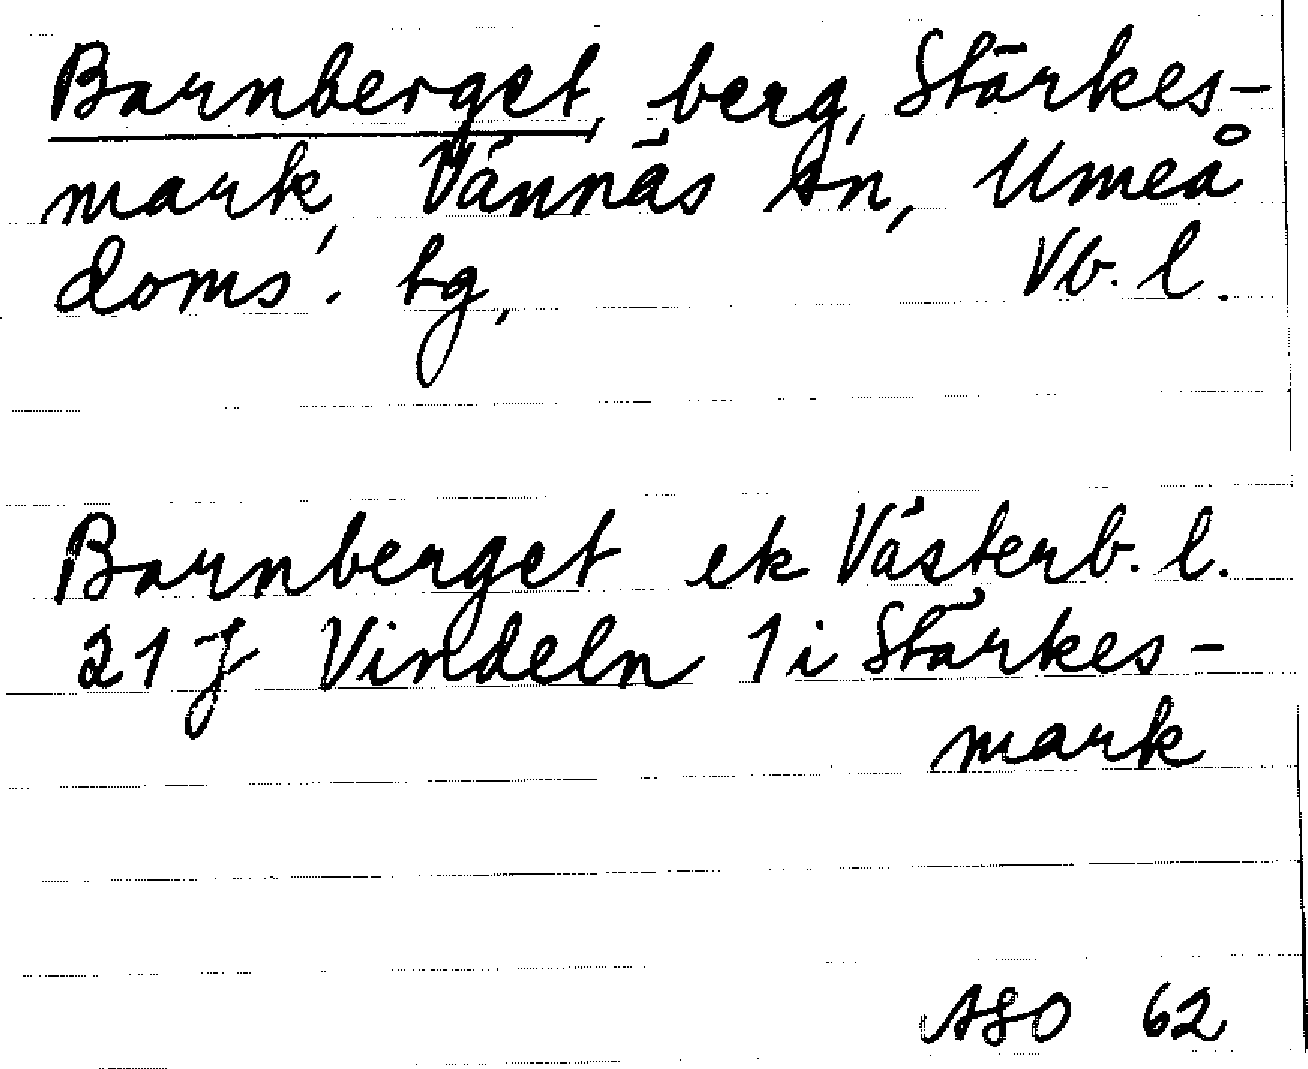 Barnberget, berg, Stärkes-
mark, Vännäs sn, Umeå
doms. tg, Vb. l.
Barnberget ek Västerb. l.
21 J Vindeln 1 i Stärkes-
mark
ASO 62